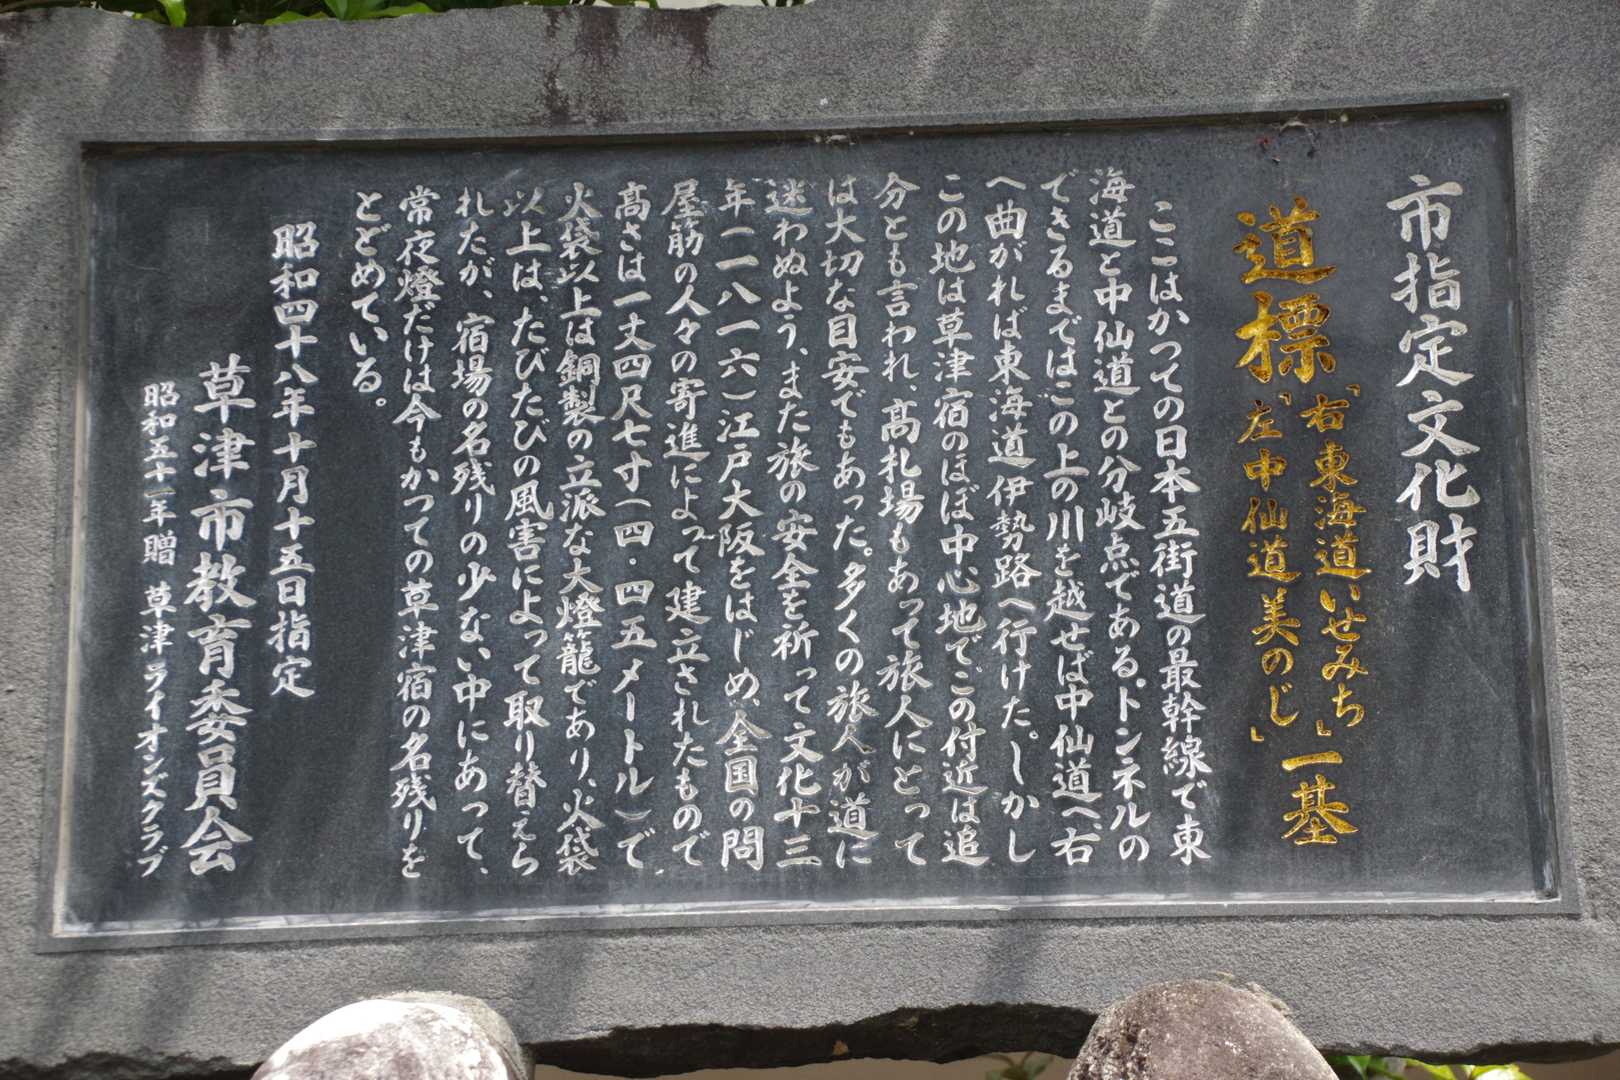 市指定文化財
道標「右東海道いせみち」「左中仙道美のじ」一基
ここはかつての日本五街道の最幹線で東
海道と中仙道との分岐点である。トンネルの
できるまではこの上の川を越せば中仙道へ、右
へ曲がれば東海道伊勢路へ行けた。しかし
この地は草津宿のほぼ中心地で、この付近は追
分とも言われ、高札場もあって旅人にとって
は大切な目安でもあった。多くの旅人が道に
迷わぬよう、また旅の安全を祈って文化十三
年(一八一六)江戸大阪をはじめ、全国の問
屋筋の人々の寄進によって建立されたもので
高さは一丈四尺七寸(四・四五メートル)で
火袋以上は銅製の立派な大燈籠であり、火袋
以上は、たびたびの風害によって取り替えら
れたが、宿場の名残りの少ない中にあって、
常夜燈だけは今もかつての草津宿の名残りを
とどめている。
昭和四十八年十月十五日指定
草津市教育委員会
昭和五十一年贈 草津ライオンズクラブ